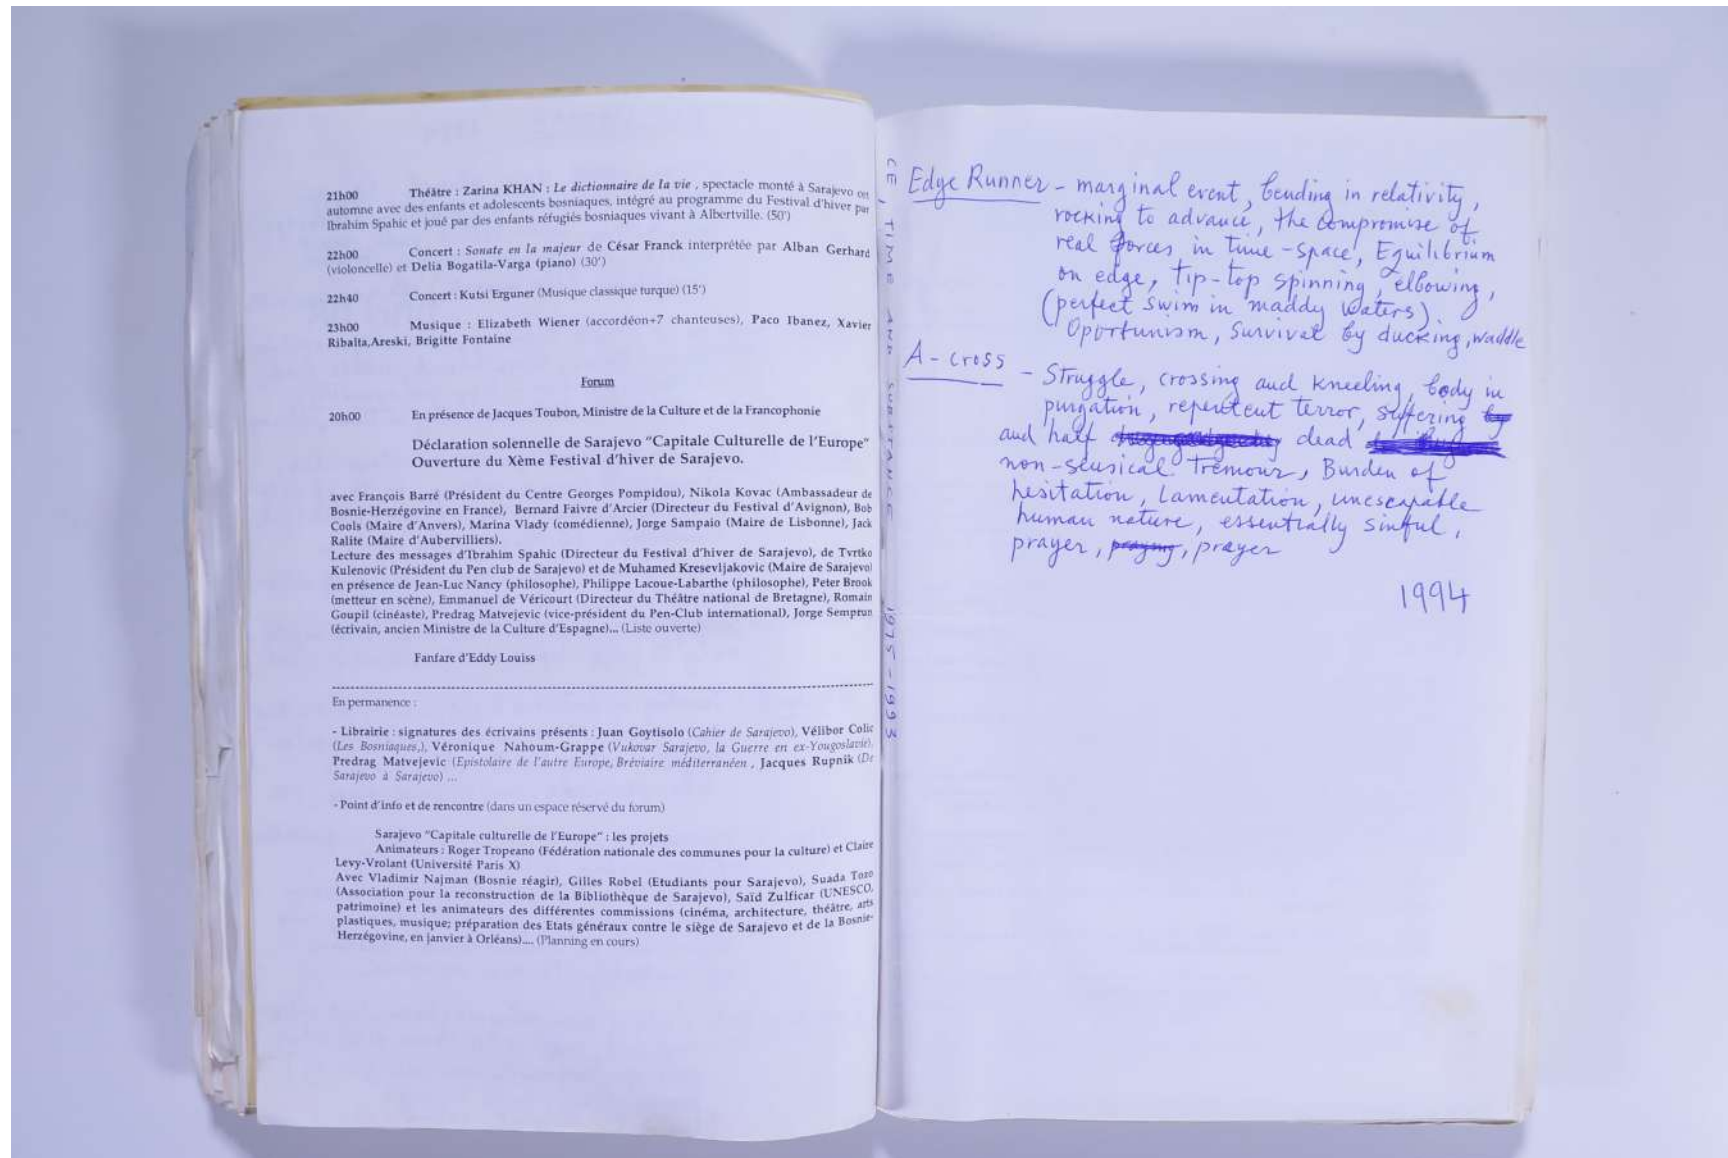 21h00 Théâtre : Zarina KHAN : Le dictionnaire de la vie , spectacle monté à Sarajevo cet
automne avec des enfants et adolescents bosniaques, intégré au programme du Festival d'hiver par
Ibrahim Spahic et joué par des enfants réfugiés bosniaques vivant à Albertville. (50')
22h00 Concert : Sonate en la majeur de César Franck interprétée par Alban Gerhard
(violoncelle) et Delia Bogatila-Varga (piano) (30')
22h40 Concert : Kutsi Erguner (Musique classique turque) (15')
23h00 Musique : Elizabeth Wiener (accordéon+7 chanteuses), Paco Ibanez, Xavier
Ribalta,Areski, Brigitte Fontaine
Forum
20h00 En présence de Jacques Toubon, Ministre de la Culture et de la Francophonie
Déclaration solennelle de Sarajevo "Capitale Culturelle de l'Europe"
Ouverture du Xème Festival d'hiver de Sarajevo.
avec François Barré (Président du Centre Georges Pompidou), Nikola Kovac (Ambassadeur de
Bosnie-Herzégovine en France), Bernard Faivre d'Arcier (Directeur du Festival d'Avignon), Bob
Cools (Maire d'Anvers), Marina Vlady (comédienne), Jorge Sampaio (Maire de Lisbonne), Jack
Ralite (Maire d'Aubervilliers).
Lecture des messages d'Ibrahim Spahic (Directeur du Festival d'hiver de Sarajevo), de Tvrtko
Kulenovic (Président du Pen club de Sarajevo) et de Muhamed Kresevljakovic (Maire de Sarajevo)
en présence de Jean-Luc Nancy (philosophe), Philippe Lacoue-Labarthe (philosophe), Peter Brook
(metteur en scène), Emmanuel de Véricourt (Directeur du Théâtre national de Bretagne), Romain
Goupil (cinéaste), Predrag Matvejevic (vice-président du Pen-Club international), Jorge Semprun
(écrivain, ancien Ministre de la Culture d'Espagne)... (Liste ouverte)
Fanfare d'Eddy Louiss
En permanence :
- Librairie : signatures des écrivains présents : Juan Goytisolo (Cahier de Sarajevo), Vélibor Colic
(Les Bosniaques,), Véronique Nahoum-Grappe (Vukovar Sarajevo, la Guerre en ex-Yougoslavie),
Predrag Matvejevic (Epistolaire de l'autre Europe, Bréviaire méditerranéen , Jacques Rupnik (De
Sarajevo à Sarajevo) ...
- Point d'info et de rencontre (dans un espace réservé du forum)
Sarajevo "Capitale culturelle de l'Europe" : les projets
Animateurs : Roger Tropeano (Fédération nationale des communes pour la culture) et Claire
Levy-Vrolant (Université Paris X)
Avec Vladimir Najman (Bosnie réagir), Gilles Robel (Etudiants pour Sarajevo), Suada Tozo
(Association pour la reconstruction de la Bibliothèque de Sarajevo), Saïd Zulficar (UNESCO,
patrimoine) et les animateurs des différentes commissions (cinéma, architecture, théâtre, arts
plastiques, musique; préparation des Etats généraux contre le siège de Sarajevo et de la Bosnie-
Herzégovine, en janvier à Orléans).... (Planning en cours)
CE, TIME AND SUBSTANCE 1975-1993
Edge Runner - marginal event, bending in relativity,
rocking to advance, the compromise of
real forces in time-space, Equilibrium
on edge, tip-top spinning, elbowing,
(perfect swim in maddy waters).
Oportunism, Survival by ducking, waddle
A-cross - Struggle, crossing and kneeling, body in
purgation, repentent terror, suffering by
and half dead
non-seusical tremour, Burden of
hesitation, Lamentation, unescapable
human nature, essentially sinful,
prayer, praying, prayer
1994